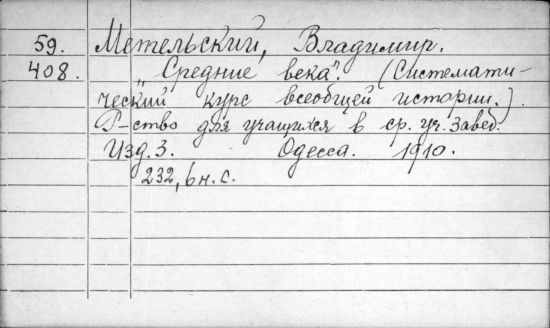 59. Метельский, Владимир.
408. „Средние века". (Системати-
ческий курс всеобщей истории.).
Р-ство для учащихся в ср. уч. завед.
Изд. 3. Одесса. 1910.
232, 6 н. с.